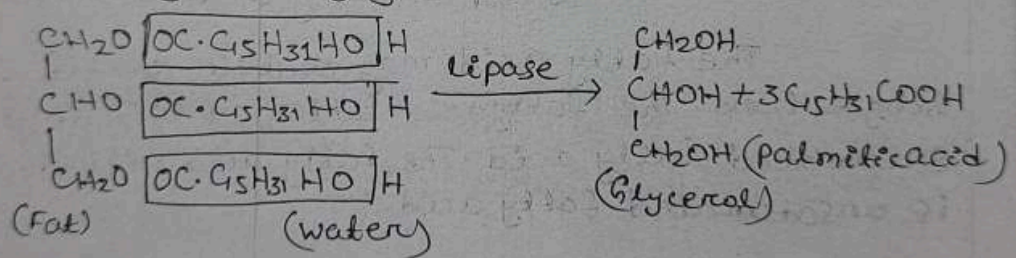 CH2O OC·C15H31HO H
CHO OC·C15H31HO H
CH2O OC·C15H31 HO H
(Fat) (water)
Lipase
CH2OH
CHOH + 3C15H31COOH
CH2OH (Palmitic acid)
(Glycerol)